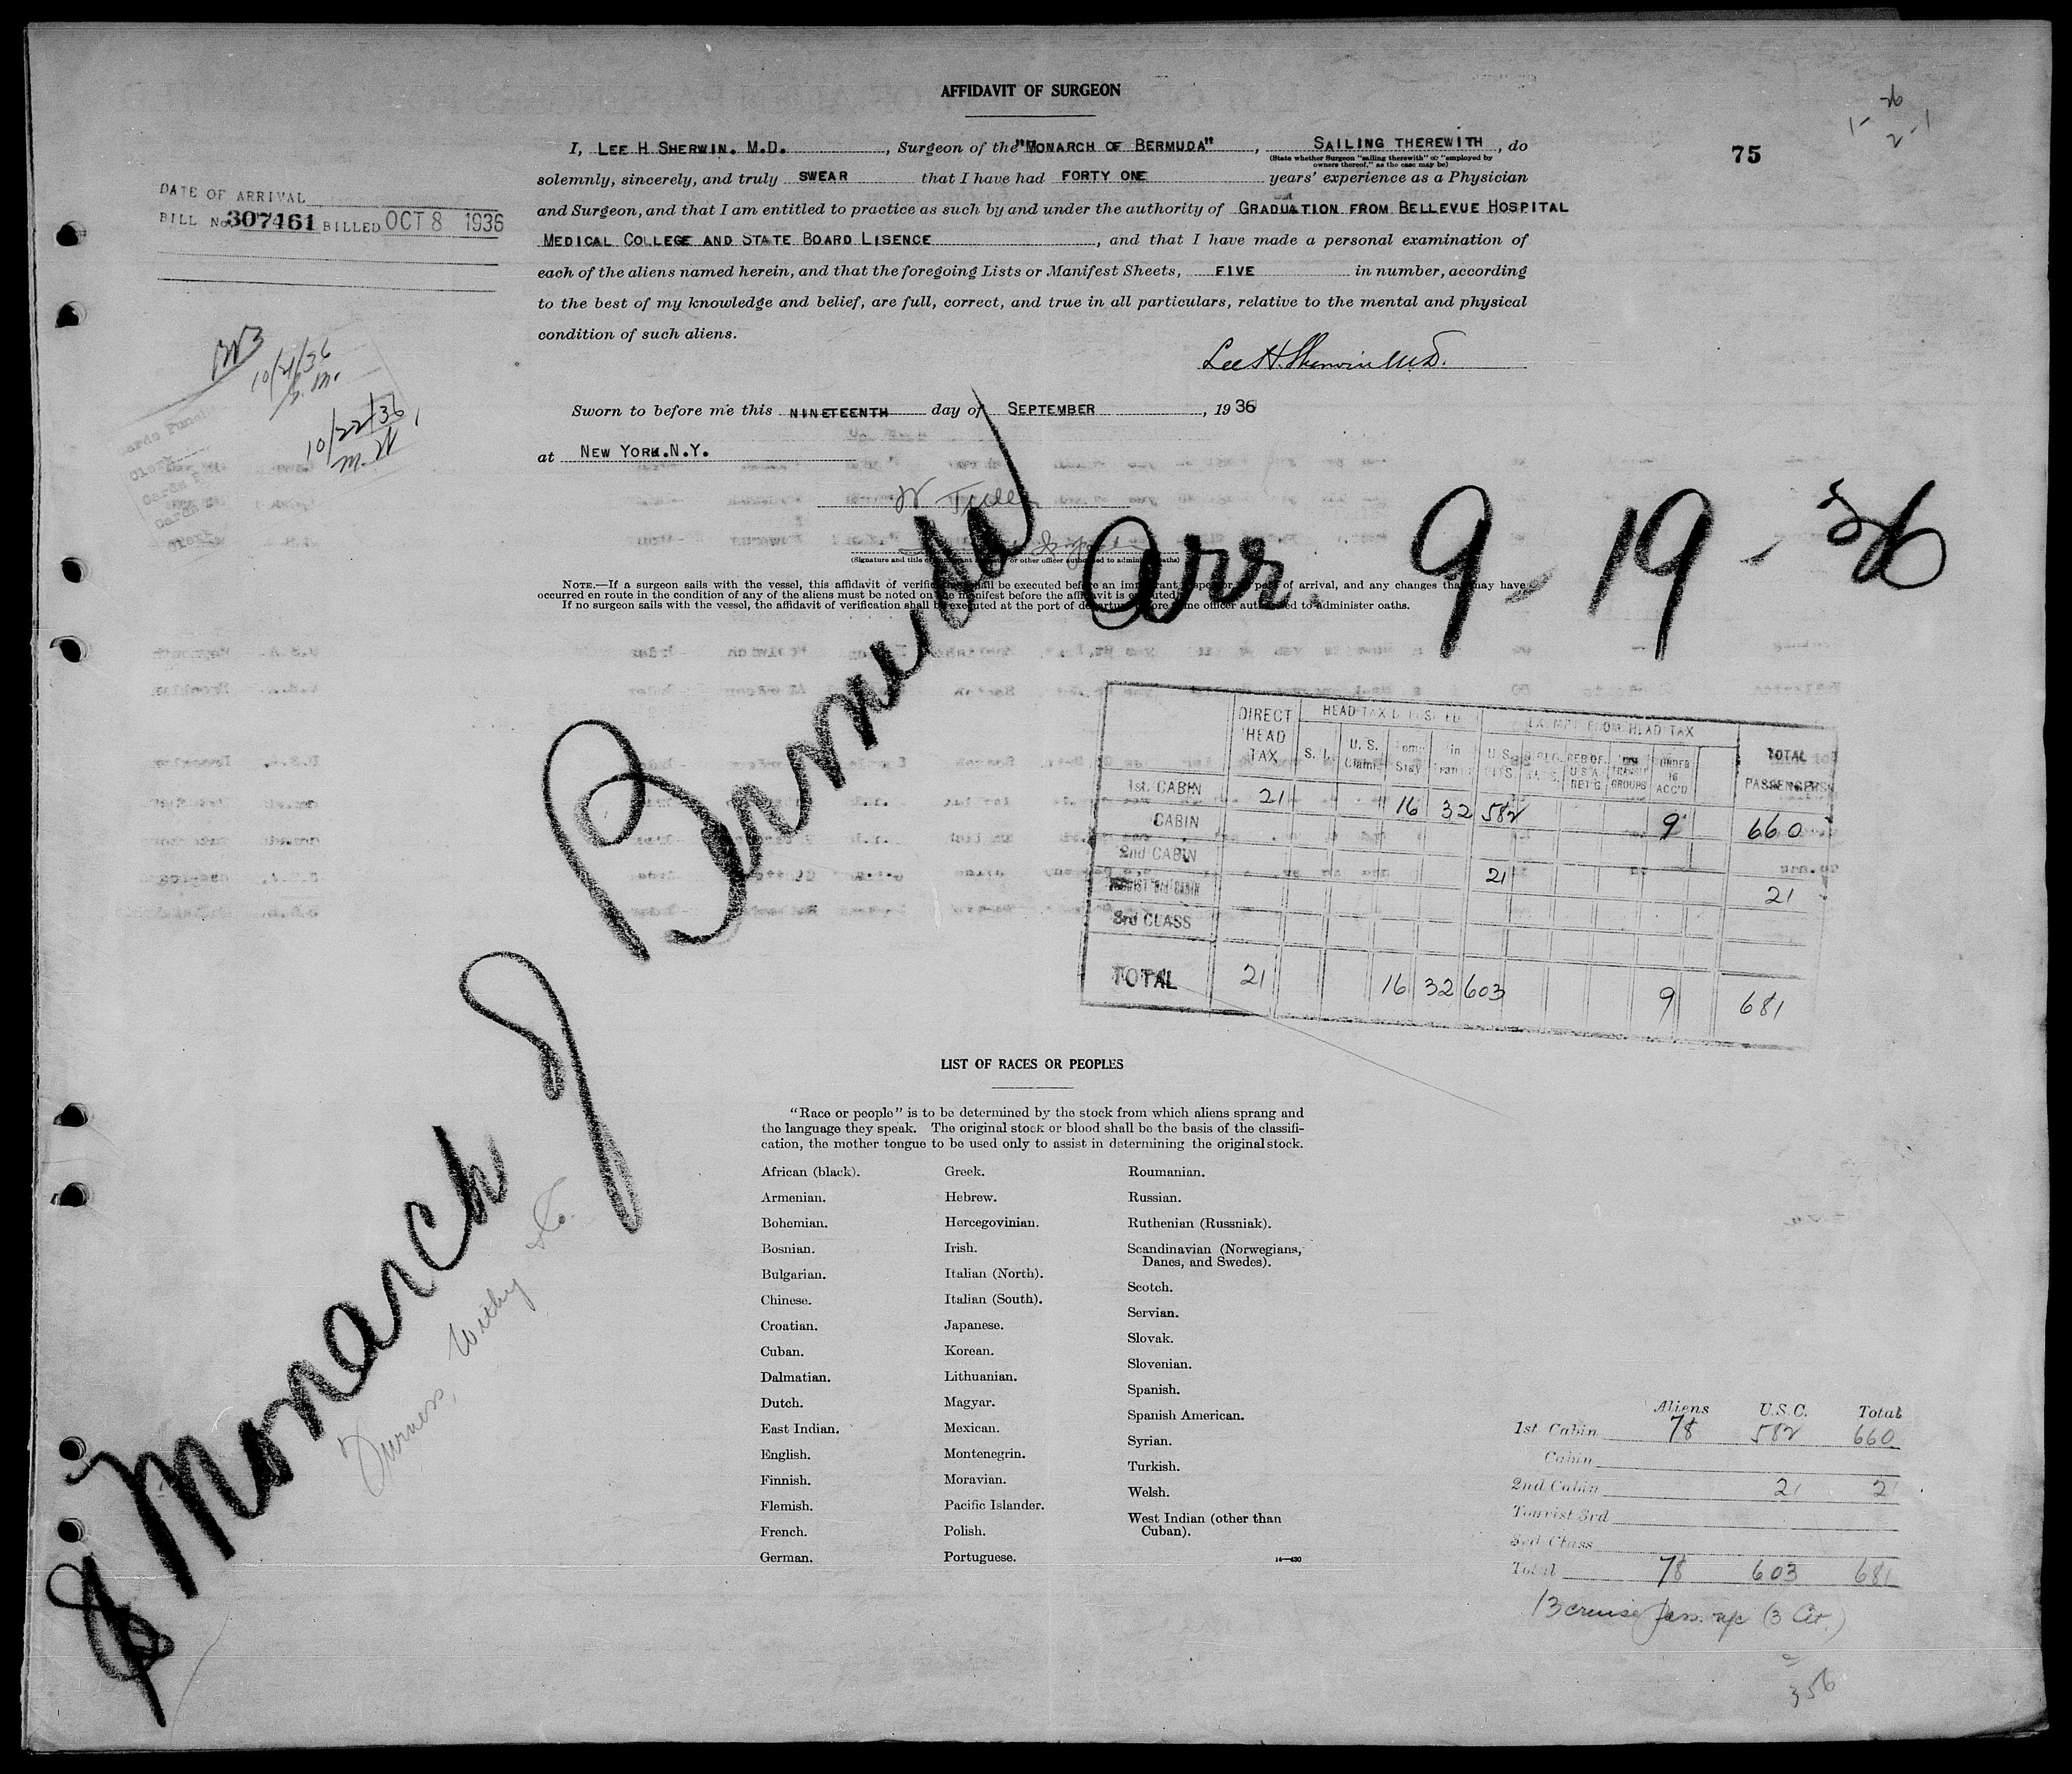 AFFIDAVIT OF SURGEON
75
I, LEE H SHERWIN. M.D. , Surgeon of the "MONARCH OF BERMUDA" , SAILING THEREWITH , do
(State whether Surgeon "sailing therewith" or "employed by
owners thereof," as the case may be)
solemnly, sincerely, and truly SWEAR that I have had FORTY ONE years' experience as a Physician
and Surgeon, and that I am entitled to practice as such by and under the authority of GRADUATION FROM BELLEVUE HOSPITAL
MEDICAL COLLEGE AND STATE BOARD LISENCE , and that I have made a personal examination of
each of the aliens named herein, and that the foregoing Lists or Manifest Sheets, FIVE in number, according
to the best of my knowledge and belief, are full, correct, and true in all particulars, relative to the mental and physical
condition of such aliens.
Lee H. Sherwin M.D.
DATE OF ARRIVAL
BILL No. 307461 BILLED OCT 8 1936
10/21/36
10/22/36
M. W
Sworn to before me this NINETEENTH day of SEPTEMBER , 1936
at NEW YORK.N.Y.
(Signature and title of immigrant inspector or other officer authorized to administer oaths)
NOTE.—If a surgeon sails with the vessel, this affidavit of verification shall be executed before an immigrant inspector at port of arrival, and any changes that may have
occurred en route in the condition of any of the aliens must be noted on the manifest before the affidavit is executed.
If no surgeon sails with the vessel, the affidavit of verification shall be executed at the port of departure before some officer authorized to administer oaths.
Monarch of Bermuda
Arr. 9-19-36
Furness, Withy & Co.
DIRECT HEAD TAX
HEAD TAX DEPOSITED
EXEMPT FROM HEAD TAX
TOTAL PASSENGERS
S. I. U. S. Claims Temp Stay In Transit U.S. CITS. UNDER 16 ACC'D
1st. CABIN 21 16 32 582 9 660
CABIN
2nd CABIN 21 21
TOURIST 3rd CABIN
3rd CLASS
TOTAL 21 16 32 603 9 681
LIST OF RACES OR PEOPLES
"Race or people" is to be determined by the stock from which aliens sprang and
the language they speak. The original stock or blood shall be the basis of the classifi-
cation, the mother tongue to be used only to assist in determining the original stock.
African (black).
Armenian.
Bohemian.
Bosnian.
Bulgarian.
Chinese.
Croatian.
Cuban.
Dalmatian.
Dutch.
East Indian.
English.
Finnish.
Flemish.
French.
German.
Greek.
Hebrew.
Hercegovinian.
Irish.
Italian (North).
Italian (South).
Japanese.
Korean.
Lithuanian.
Magyar.
Mexican.
Montenegrin.
Moravian.
Pacific Islander.
Polish.
Portuguese.
Roumanian.
Russian.
Ruthenian (Russniak).
Scandinavian (Norwegians,
Danes, and Swedes).
Scotch.
Servian.
Slovak.
Slovenian.
Spanish.
Spanish American.
Syrian.
Turkish.
Welsh.
West Indian (other than
Cuban).
14—430
Aliens U.S.C. Total
1st Cabin 78 582 660
Cabin
2nd Cabin 21 21
Tourist 3rd
3rd Class
Total 78 603 681
13 cruise pass. (3 Cit.)
356